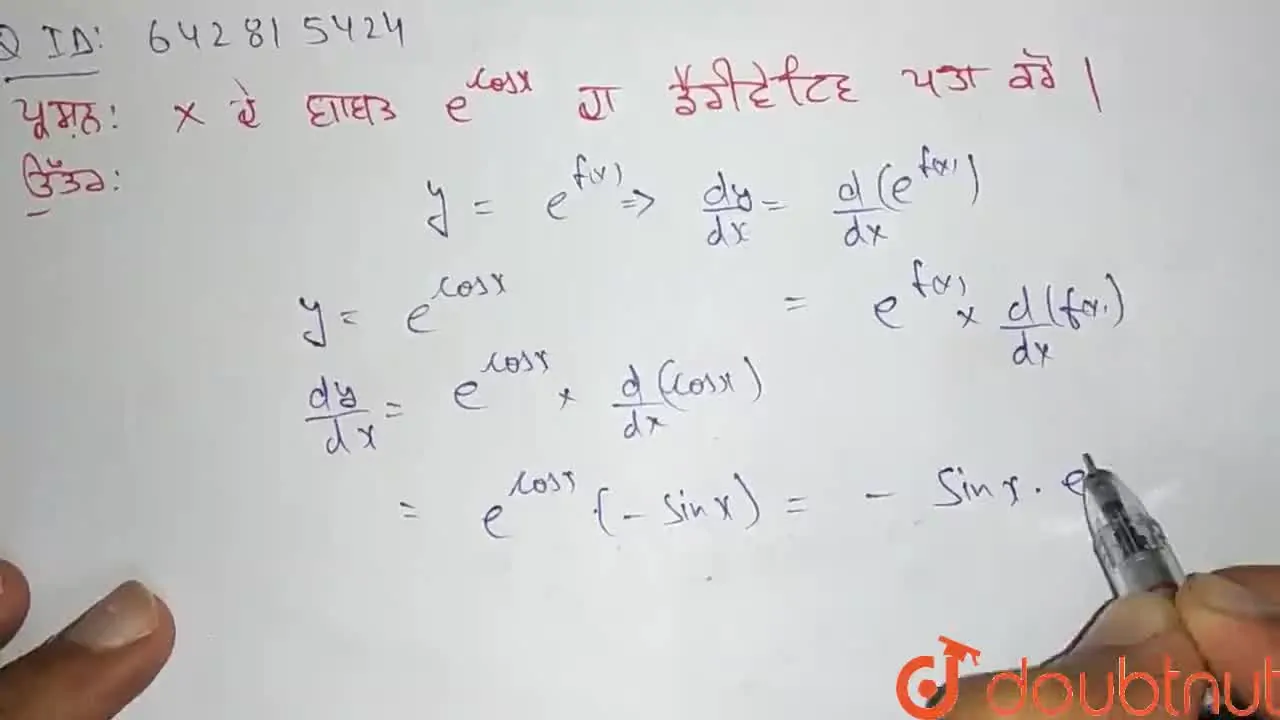 Q ID: 642815424
ਪ੍ਰਸ਼ਨ: x ਦੇ ਬਾਬਤ e^cosx ਦਾ ਡੈਰੀਵੇਟਿਵ ਪਤਾ ਕਰੋ |
ਉੱਤਰ:
y = e^f(x) => dy/dx = d/dx (e^f(x))
y = e^cosx = e^f(x) × d/dx (f(x))
dy/dx = e^cosx × d/dx (cosx)
= e^cosx · (- sinx) = - sinx · e
doubtnut